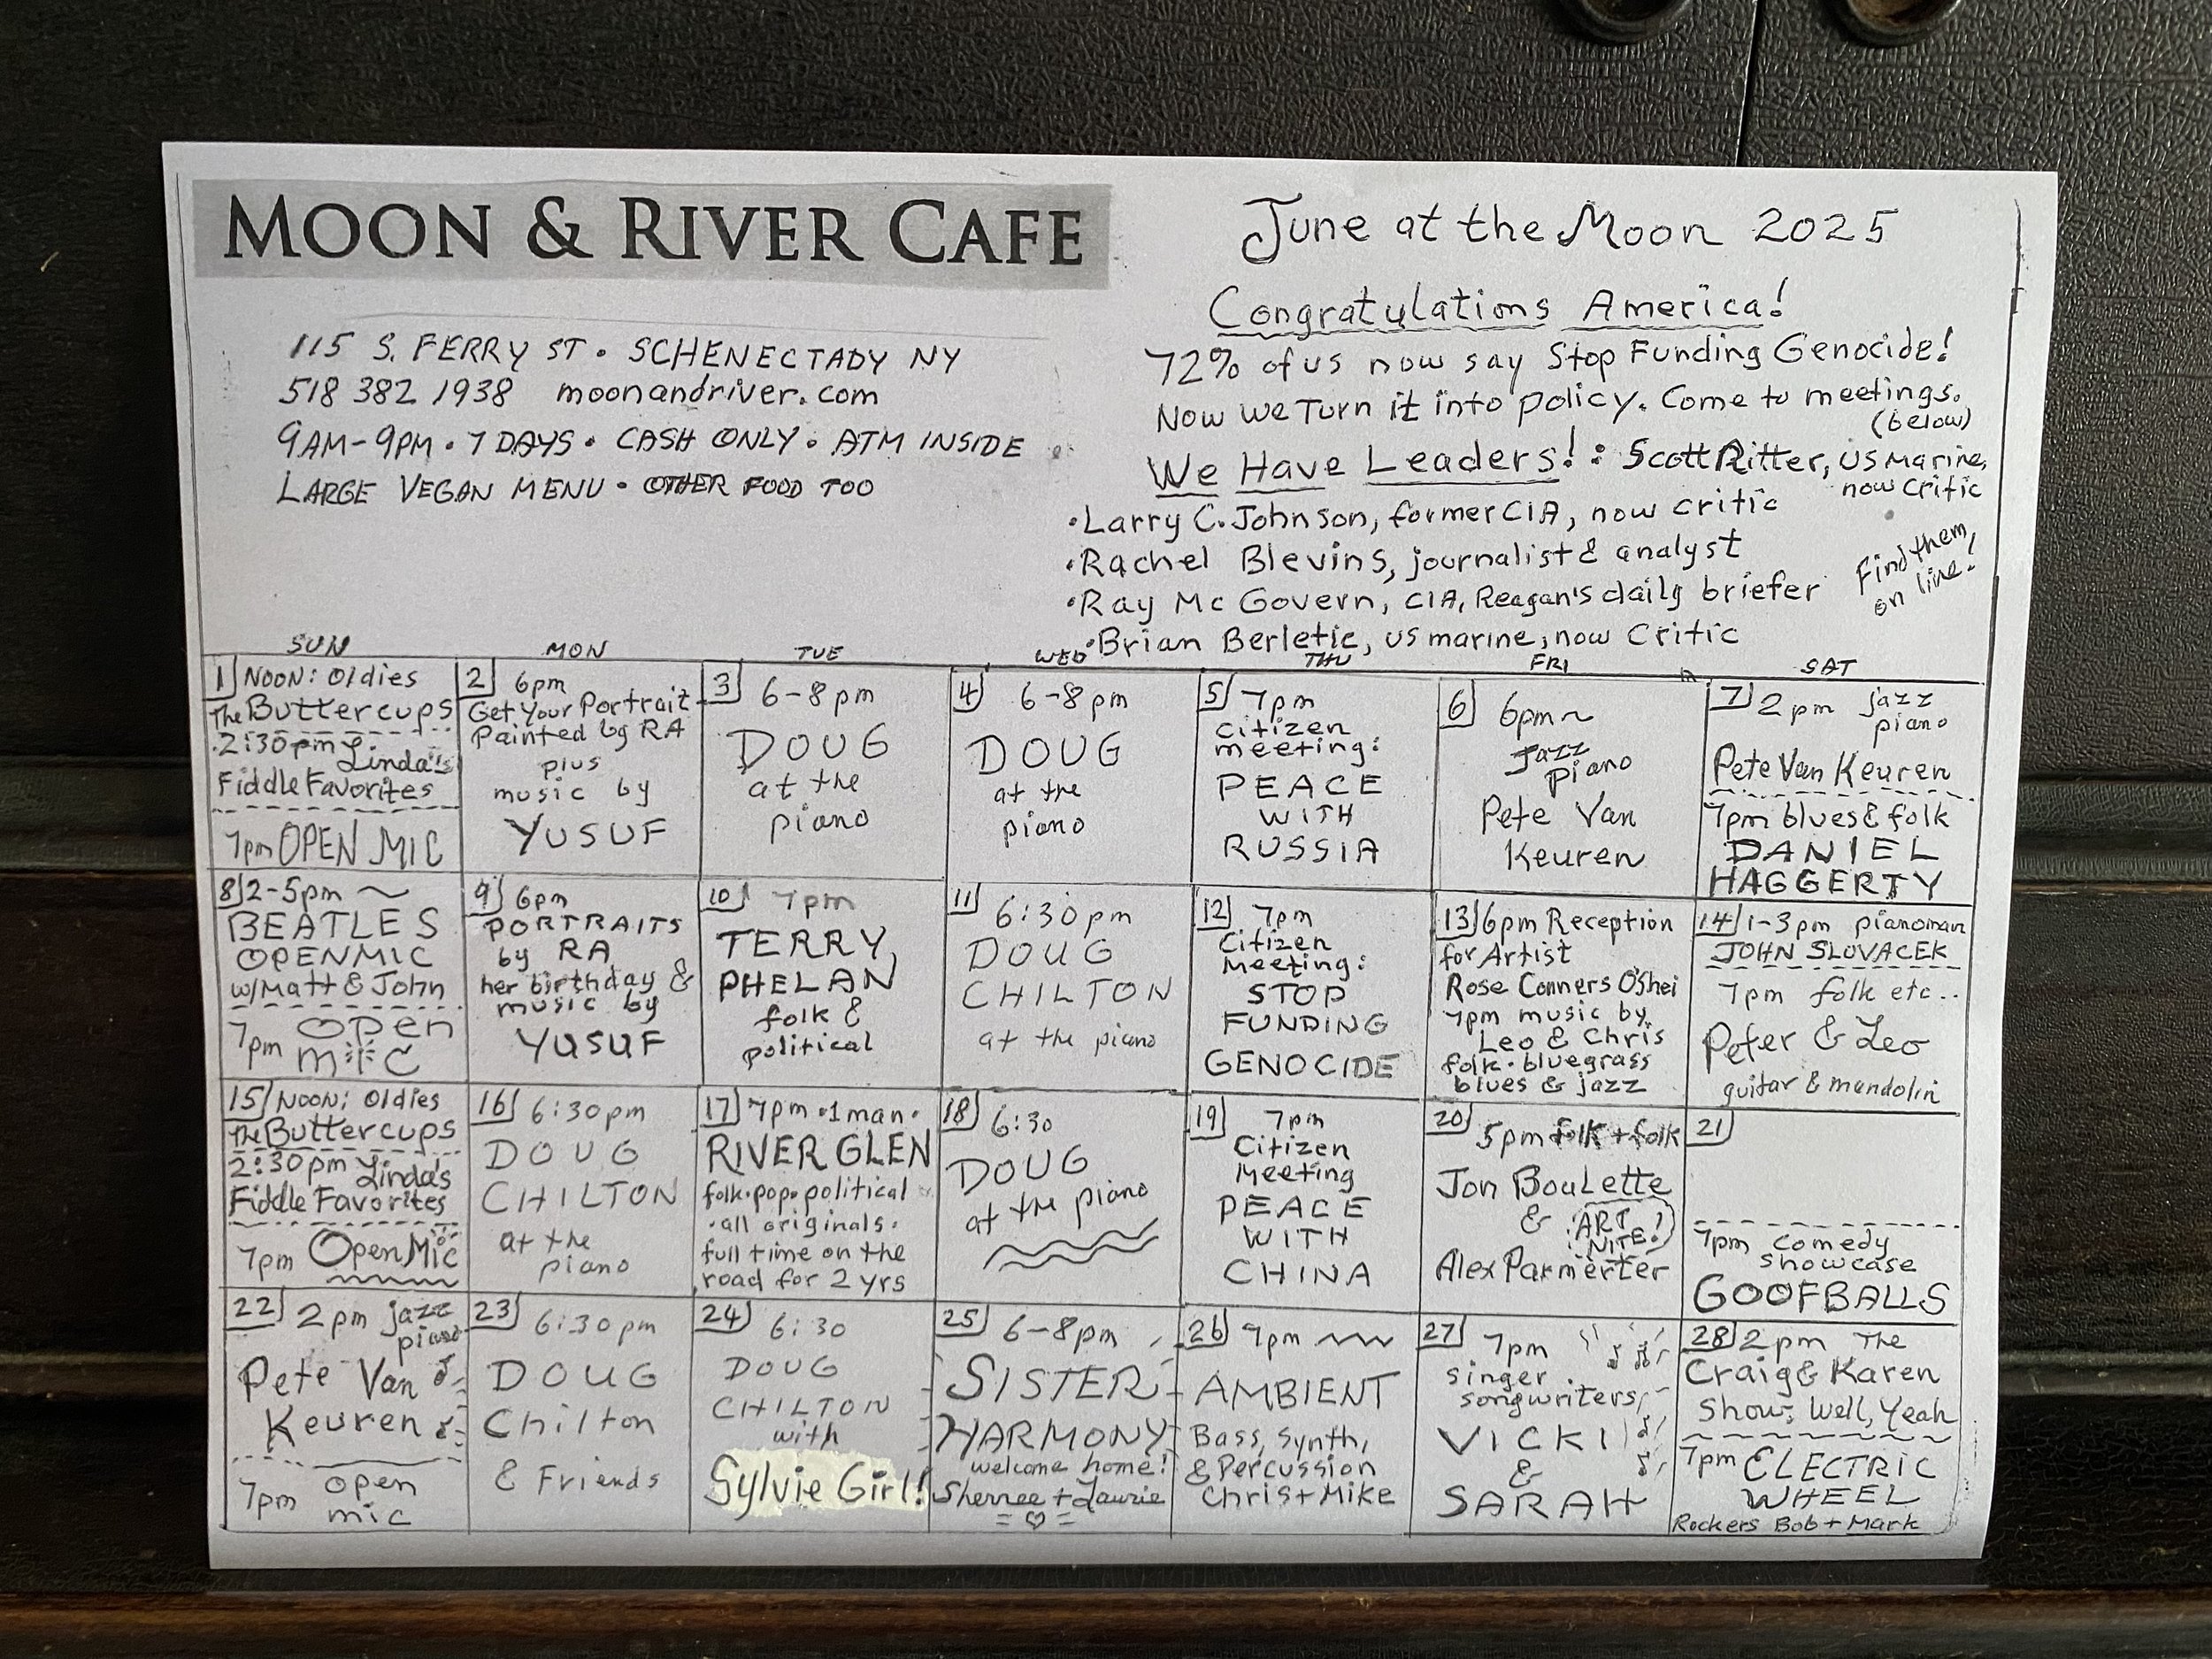 MOON & RIVER CAFE
115 S. FERRY ST • SCHENECTADY NY
518 382 1938 moonandriver.com
9AM-9PM • 7 DAYS • CASH ONLY • ATM INSIDE
LARGE VEGAN MENU • OTHER FOOD TOO
June at the Moon 2025
Congratulations America!
72% of us now say Stop Funding Genocide!
Now we Turn it into policy. Come to meetings.
(below)
We Have Leaders! : Scott Ritter, US Marine,
now critic
•Larry C. Johnson, former CIA, now critic
•Rachel Blevins, journalist & analyst
•Ray McGovern, CIA, Reagan's daily briefer
•Brian Berletic, US marine, now Critic
Find them
on line!
SUN MON TUE WED THU FRI SAT
1 NOON: Oldies
The Buttercups
2:30pm Linda's
Fiddle Favorites
7pm OPEN MIC
2 6pm
Get Your Portrait
Painted by RA
plus
music by
YUSUF
3 6-8pm
DOUG
at the
piano
4 6-8pm
DOUG
at the
piano
5 7pm
Citizen
meeting:
PEACE
WITH
RUSSIA
6 6pm~
Jazz
piano
Pete Van
Keuren
7 2pm jazz
piano
Pete Van Keuren
7pm blues & folk
DANIEL
HAGGERTY
8 2-5pm ~
BEATLES
OPENMIC
w/Matt & John
7pm Open
mic
9 6pm
PORTRAITS
by RA
her birthday &
music by
YUSUF
10 7pm
TERRY
PHELAN
folk &
political
11 6:30pm
DOUG
CHILTON
at the piano
12 7pm
Citizen
Meeting:
STOP
FUNDING
GENOCIDE
13 6pm Reception
for Artist
Rose Conners O'Shei
7pm music by
Leo & Chris
folk • bluegrass
blues & jazz
14 1-3pm pianoman
JOHN SLOVACEK
7pm folk etc..
Peter & Leo
guitar & mandolin
15 NOON: Oldies
The Buttercups
2:30pm Linda's
Fiddle Favorites
7pm Open Mic
16 6:30pm
DOUG
CHILTON
at the
piano
17 7pm •1 man•
RIVER GLEN
folk•pop•political
•all originals•
full time on the
road for 2 yrs
18 6:30
DOUG
at the piano
19 7pm
Citizen
Meeting
PEACE
WITH
CHINA
20 5pm folk + folk
Jon Boulette
& ART
NITE!
Alex Parmerter
21
7pm comedy
showcase
GOOFBALLS
22 2pm jazz
piano
Pete Van
Keuren
7pm open
mic
23 6:30pm
DOUG
Chilton
& Friends
24 6:30
DOUG
CHILTON
with
Sylvie Girl!
25 6-8pm
SISTER
HARMONY
welcome home!
Sherree + Laurie
26 7pm
AMBIENT
Bass, Synth,
& Percussion
Chris + Mike
27 7pm
singer
songwriters
VICKI
&
SARAH
28 2pm The
Craig & Karen
Show, Well, Yeah
7pm ELECTRIC
WHEEL
Rockers Bob + Mark